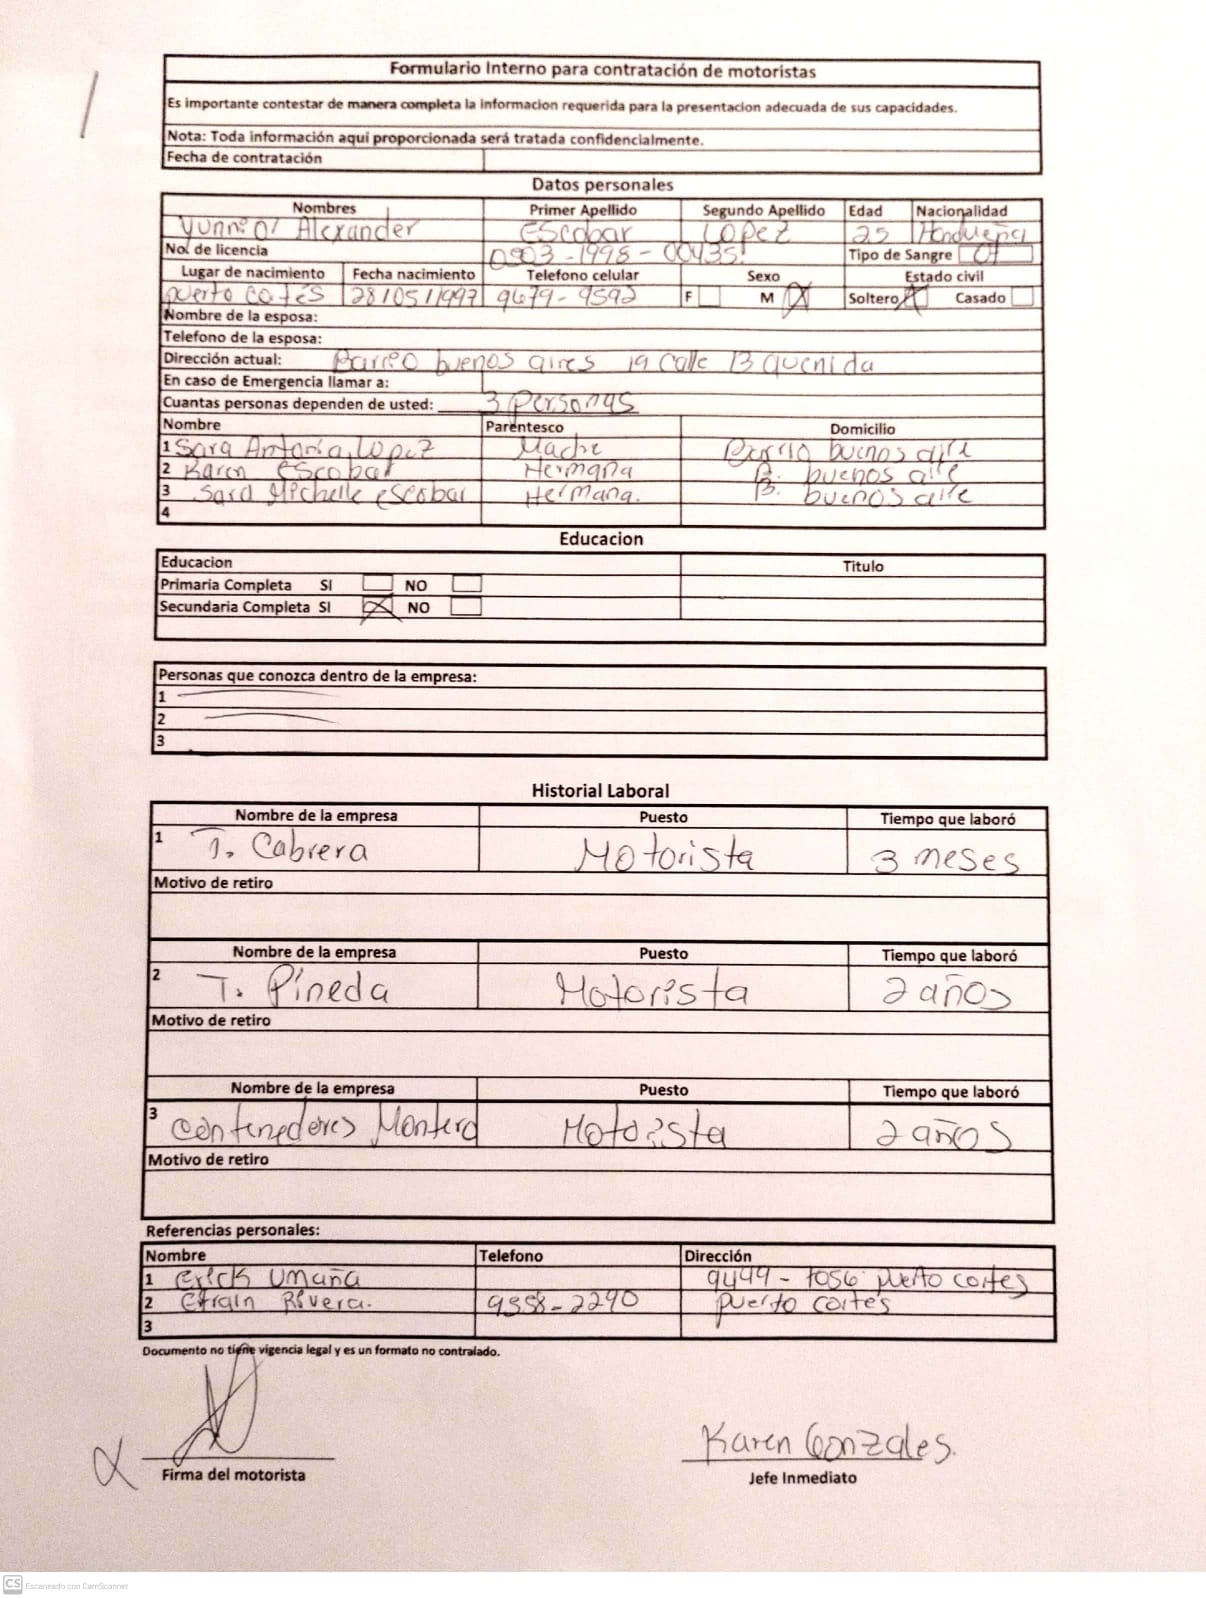 Formulario Interno para contratación de motoristas
Es importante contestar de manera completa la informacion requerida para la presentacion adecuada de sus capacidades.
Nota: Toda información aqui proporcionada será tratada confidencialmente.
Fecha de contratación
Datos personales
Nombres Primer Apellido Segundo Apellido Edad Nacionalidad
Alexander Escobar Lopez 25 Hondureña
No. de licencia 0503-1998-00435 Tipo de Sangre O+
Lugar de nacimiento Fecha nacimiento Telefono celular Sexo Estado civil
puerto cortés 28/05/1997 9679-9592 F M X Soltero X Casado
Nombre de la esposa:
Telefono de la esposa:
Dirección actual: Barrio buenos aires 19 calle 13 avenida
En caso de Emergencia llamar a:
Cuantas personas dependen de usted: 3 personas
Nombre Parentesco Domicilio
1 Sara Antonia Lopez Madre Barrio buenos aire
2 Karen escobar Hermana B. buenos aire
3 Sara Michelle escobar Hermana. B. buenos aire
4
Educacion
Educacion Titulo
Primaria Completa SI NO
Secundaria Completa SI X NO
Personas que conozca dentro de la empresa:
1
2
3
Historial Laboral
Nombre de la empresa Puesto Tiempo que laboró
1 T. Cabrera Motorista 3 meses
Motivo de retiro
Nombre de la empresa Puesto Tiempo que laboró
2 T. Pineda Motorista 2 años
Motivo de retiro
Nombre de la empresa Puesto Tiempo que laboró
3 Contenedores Montero Motorista 2 años
Motivo de retiro
Referencias personales:
Nombre Telefono Dirección
1 Erick Umaña 9499-7056 puerto cortes
2 Efrain Rivera. 9558-2290 puerto cortes
3
Documento no tiene vigencia legal y es un formato no contralado.
Karen Gonzales.
Firma del motorista Jefe Inmediato
CS Escaneado con CamScanner